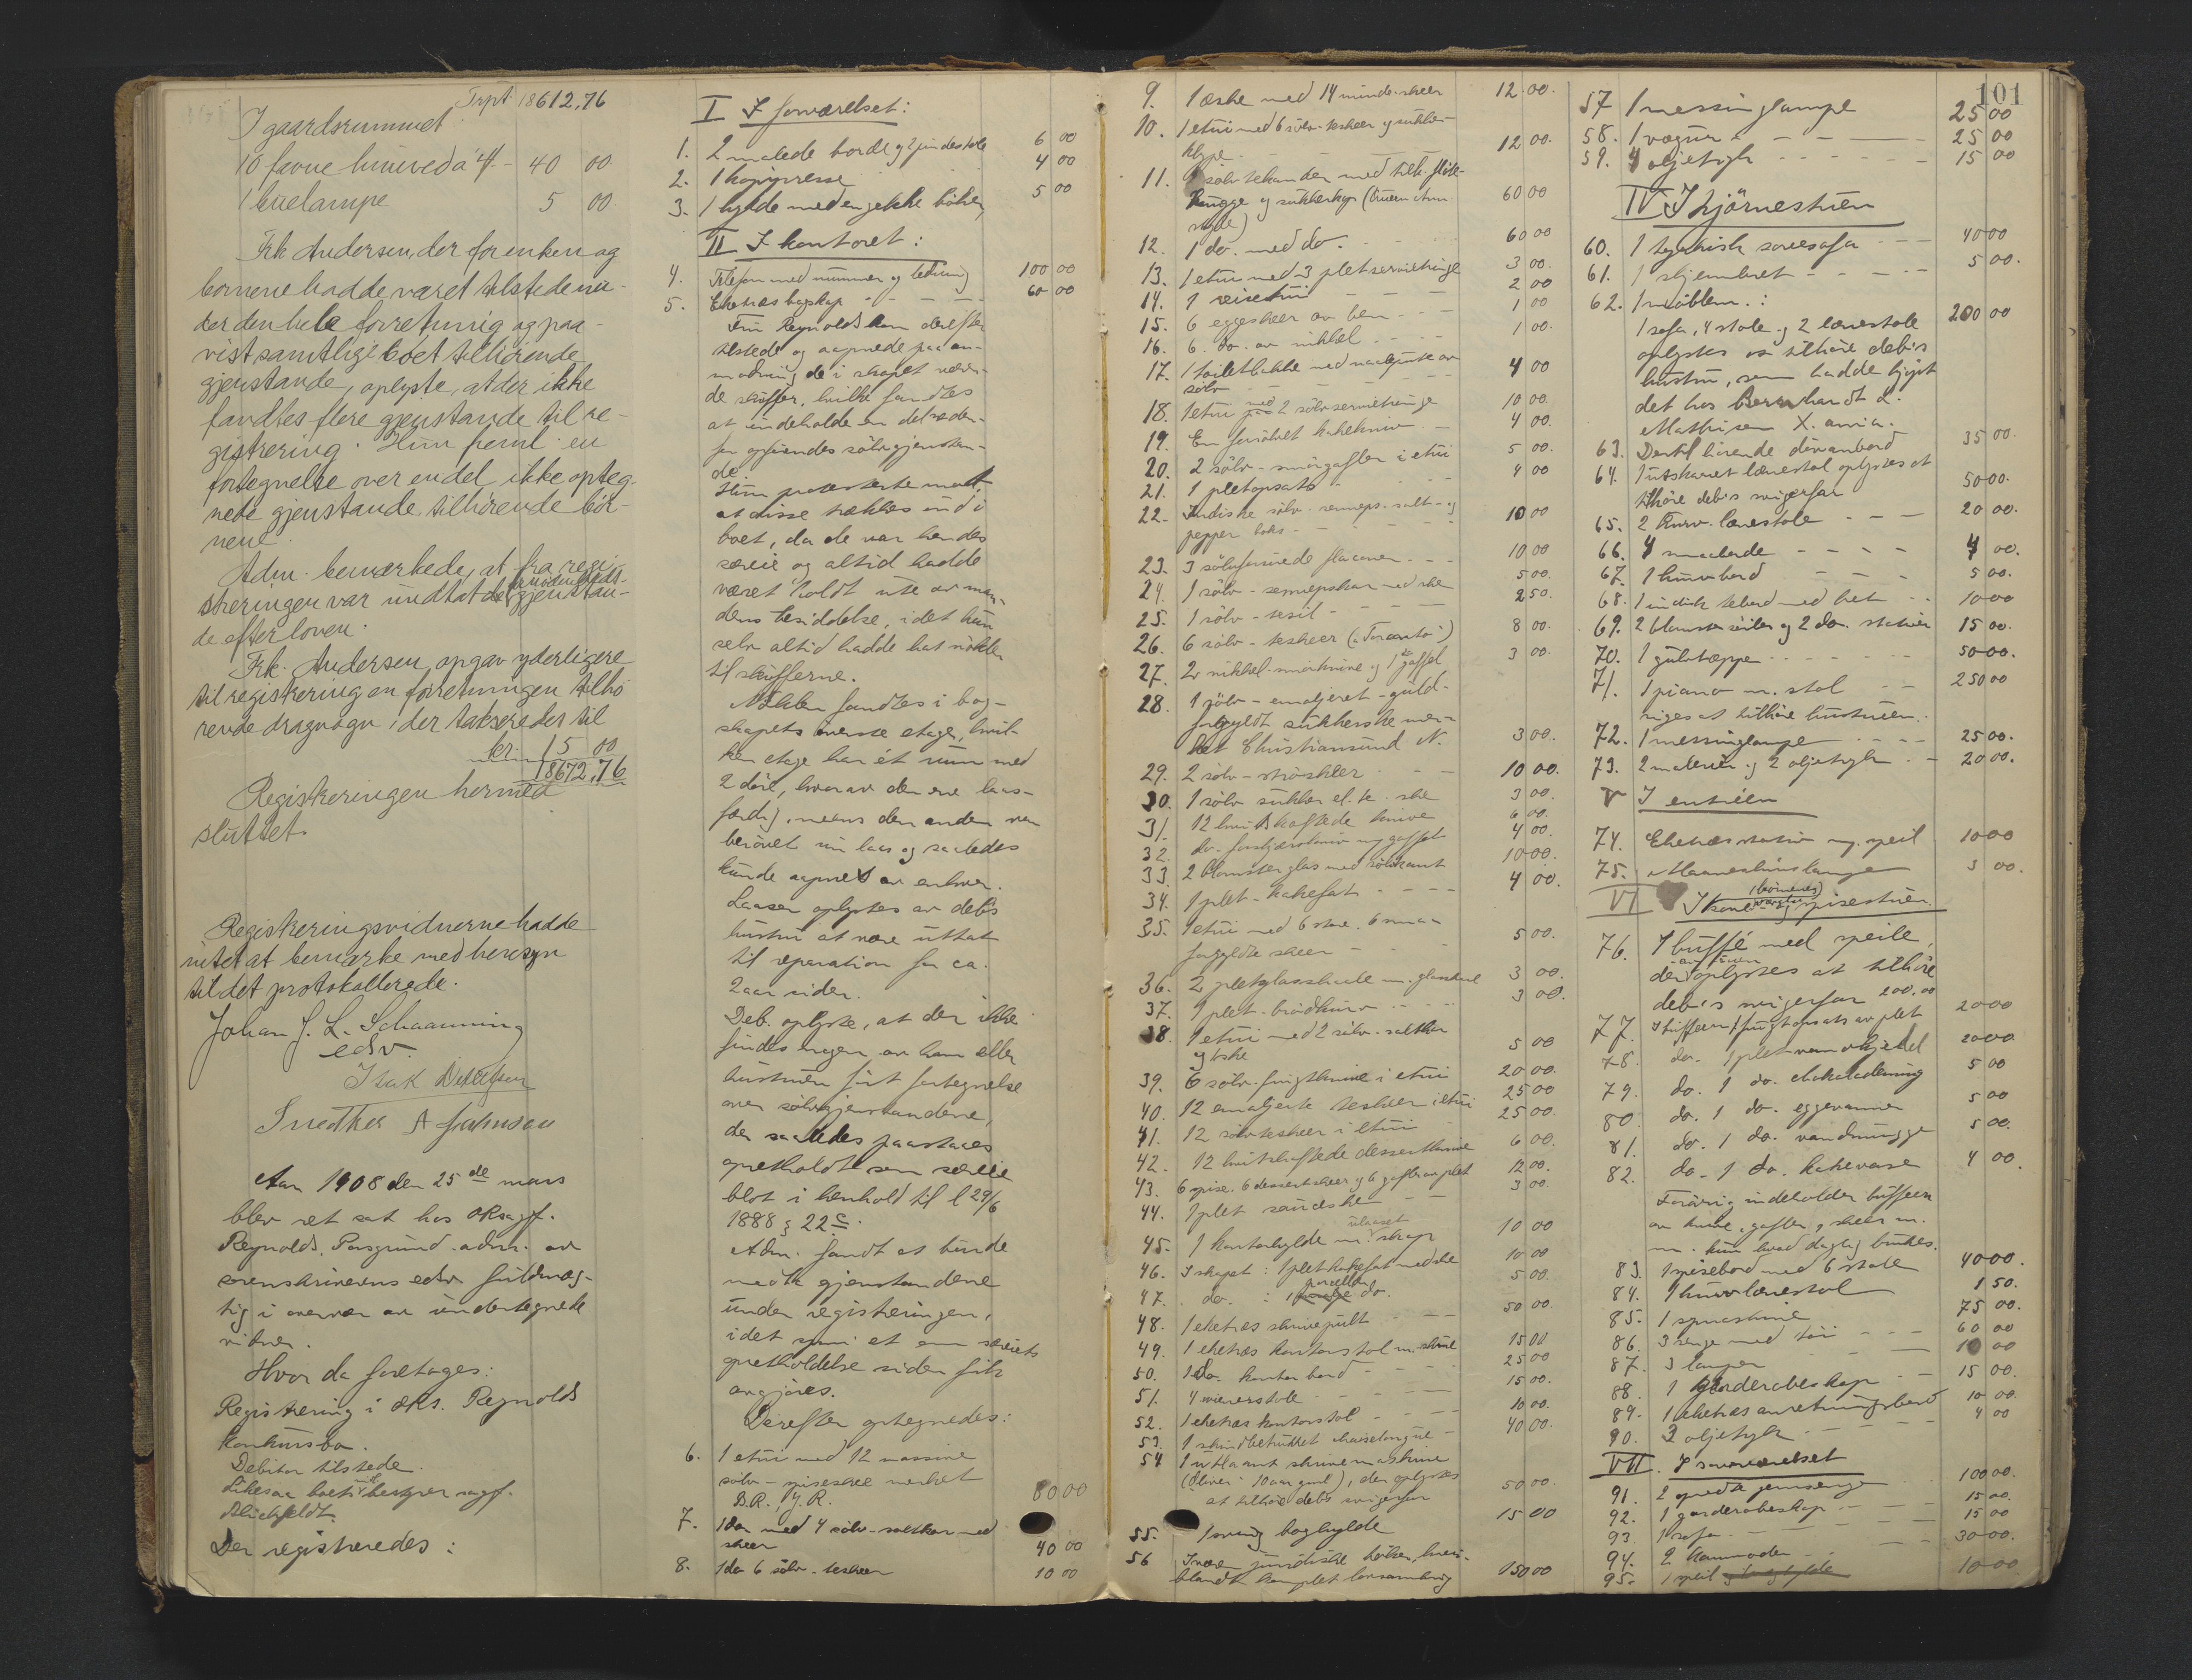 Trpt. 18612,76
I gaardsrummet
10 favne hunved à 4.- 40 00
1 buelampe 5 00.
Frk. Andersen, der for enken og
børnene hadde været tilstede un-
der den hele forretning og paa-
vist samtlige boet tilhørende
gjenstande, oplyste, at der ikke
fandtes flere gjenstande til re-
gistrering. Hun freml. en
fortegnelse over endel ikke opteg-
nede gjenstande tilhørende bør-
nene.
Adm. bemærkede, at fra regi-
streringen var undtat de nødvendigheds-
gjenstan-
de efter loven.
Frk. Andersen opgav yderligere
til registrering en forretningen tilhø
rende dragvogn, der takseredes til
kr. 15 00
18672,76
Registreringen hermed
sluttet.
Registreringsvidnerne hadde
intet at bemærke med hensyn
til det protokollerede.
Johan J. L. Schaanning
edsv.
Isak
Snedker A Johnsen
Aar 1908 den 25de mars
blev ret sat hos oksagf.
Reynolds, Porsgrund. adm. av
sorenskriverens edsv. fuldmæg-
tig i overvær av undertegnede
vidner.
Hvor da foretages:
Registrering i oks. Reynolds
konkursbo.
Debitor tilstede.
Likesaa boets mit. bestyrer sagf.
Blichfeldt.
Der registreredes:
I I forværelset:
1. 2 malede borde og 2 pindestole 6 00
2. 1 kopipresse 4 00
3. 1 hylde med en gekke bøker 5 00
II I kontoret:
4. Telefon med nummer og ledning 100 00
5. Eketræs bogskap - - - 60 00
Fru Reynolds kom derefter
tilstede og aapnede paa an-
modning de i skapet væren-
de skuffer, hvilke fandtes
at indeholde en del neden-
for opførendes sølvgjenstan-
de.
Hun protesterte mot,
at disse trækkes ind i
boet, da de var hendes
særeie og altid hadde
været holdt ute av man-
dens besiddelse, idet hun
selv altid hadde hat nøklen
til skufferne.
Nøklen fandtes i bog-
skapets øverste etage, hvil-
ken etage har ét rum med
2 døre, hvorav den ene laas-
færdig, mens den anden var
berøvet sin laas og saaledes
kunde aapnes av enhver.
Laasen oplystes av deb's
hustru at være uttat
til reparation for ca.
2 aar siden.
Deb. oplyste, at der ikke
findes nogen av ham eller
hustruen ført fortegnelse
over sølvgjenstandene,
der saaledes paastaaes
opretholdt som særeie
blot i henhold til l 29/6
1888 § 22 c.
Adm. fandt at burde
medta gjenstandene
under registreringen,
idet spm. et om særeiets
opretholdelse siden fik
avgjøres.
Derefter optegnedes:
6. 1 etui med 12 massive
sølv-spiseskeer merket
B.R., Y.R. 80 00
7. 1 do. med 4 sølv-saltkar med
skeer 40 00
8. 1 do 6 sølv-teskeer 10 00
9. 1 æske med 14 mindre skeer 12 00.
10. 1 etui med 6 sølv-teskeer og sukker-
klype 12 00.
11. 1 sølvtekanden med tilh. fløte-
mugge og sukkerkop (
) 60 00
12. 1 do. med do. 60 00
13. 1 etui med 3 pletservietringe 3 00.
14. 1 reiseetui 2 00
15. 6 eggeskeer av ben 1 00
16. 6 do. av nikkel 1 00.
17. 1 toiletbakke med naalpute av
sølv 4 00
18. 1 etui med 2 sølvservietringe 10 00.
19. En forsølvet kakekniv 4 00.
20. 2 sølv-smørgafler i etui 5 00.
21. 1 pletopsats 4 00
22. Indiske sølv-senneps-salt- og
pepper boks 10 00
23. 3 sølvforsirede flaconer 10 00
24. 1 sølv-sennepskar med ske 5 00.
25. 1 sølv-tesil 2 50.
26. 6 sølv-teskeer ("Toronto") 8 00.
27. 2 nikkel-smørknive og 1 do gaffel 3 00.
28. 1 sølv-emaljeret-guld-
forgyldt sukkerske mer-
ket Christiansund N. 3 00.
29. 2 sølv-strøskeer 10 00.
30. 1 sølv sukker el. te ske 3 00.
31. 12 hvitskaftede knive 6 00.
32. do. forskjærskniv og gaffel 4 00.
33. 2 blomsterglas med sølvkant 10 00.
34. 1 plet-kakefat 4 00.
35. 1 etui med 6 store, 6 smaa
forgyldte skeer 5 00.
36. 2 pletglasskaale m. glasskaal 3 00.
37. 1 plet-brødkurv 3 00.
38. 1 etui med 2 sølv-saltkar
og ske 5 00
39. 6 sølv-frugtknive i etui 20 00.
40. 12 emaljerte teskeer i etui 25 00
41. 12 sølvteskeer i etui 25 00.
42. 12 hvitskaftede dessertknive 6 00.
43. 6 spise. 6 dessertskeer og 6 gafler av plet 12 00.
44. 1 plet sauceske 3 00.
45. 1 kontorhylde m. ulaaset skap 10 00
46. I skapet: 1 plet kakefat med ske 10 00
47. do. : 1 porcellæn do. 5 00.
48. 1 eketræs skrivepult 50 00.
49. 1 eketræs kontorstol m. skind 15 00
50. 1 do. kontorbord 25 00
51. 4 wienerstole 15 00.
52. 1 eketræs kontorstol 10 00.
53. 1 skindbetrukket chaiselongue 40 00.
54 1 utslaamt skrivemaskine
(Oliver - 10 aar gml), der oplystes
at tilhøre debs svigerfar 50 00.
55. 1 sving boghylde 15 00
56 Svære juridiske bøker, hvori-
blandt komplet lovsamling 150 00
101
57 1 messinglampe 25 00
58. 1 vægur 25 00
59. 4 oljetryk 15 00
IV I hjørnestuen
60. 1 tyrkisk sovesofa 40 00
61. 1 skjermbret 5 00.
62. 1 møblem.:
1 sofa, 4 stole og 2 lænestole 200 00
oplystes at tilhøre deb's
hustru, som hadde kjøpt
det hos Bernhardt L.
Mathisen X.ania.
63. Dertil hørende divanbord 35 00.
64. 1 utskaaret lænestol oplystes at
tilhøre deb's svigerfar 50 00.
65. 2 kurv-lænestole 20 00.
66. 4 smaaborde 4 00.
67. 1 kurvbord 5 00.
68. 1 indisk tebord med bret 10 00
69. 2 blomstersøiler og 2 do. stativer 15 00.
70. 1 gulvtæppe 50 00.
71. 1 piano m. stol 250 00
siges at tilhøre hustruen.
72. 1 messinglampe 25 00.
73. 2 malerier og 2 oljetryk 20 00.
V I entréen
74. Eketræsstativ og speil 10 00
75. Maaneskinslampe 3 00.
VI (børneværelse)
I sove- og spisestuen
76. 1 buffé med speile,
der av fruen oplystes at tilhøre
deb's svigerfar 200.00
77. I bufféen 1 frugtopsats av plet 20 00
78. do. 1 plet-vandkjedel 20 00.
79. do. 1 do. chokolademug 5 00
80. do. 1 do. eggevarmer 5 00
81. do. 1 do. vandmugge 5 00.
82. do. 1 do. kakevase 4 00.
Forøvrig indeholder bufféen
av knive, gafler, skeer m.
m. kun hvad daglig brukes.
83. 1 spisebord med 6 stole 40 00.
84. 1 kurvlænestol 1 50.
85. 1 symaskine 75 00.
86. 3 senge med tøi 60 00
87. 3 lamper 10 00
88. 1 garderobeskap 15 00.
89. 1 eketræs anretningsbord 10 00.
90. 3 oljetryk 4 00
VII. I soveværelset
91. 2 opredte jernsenge 100 00.
92. 1 garderobeskap 15 00.
93. 1 sofa 15 00
94. 2 kommoder 30 00.
95. 1 speil 10 00